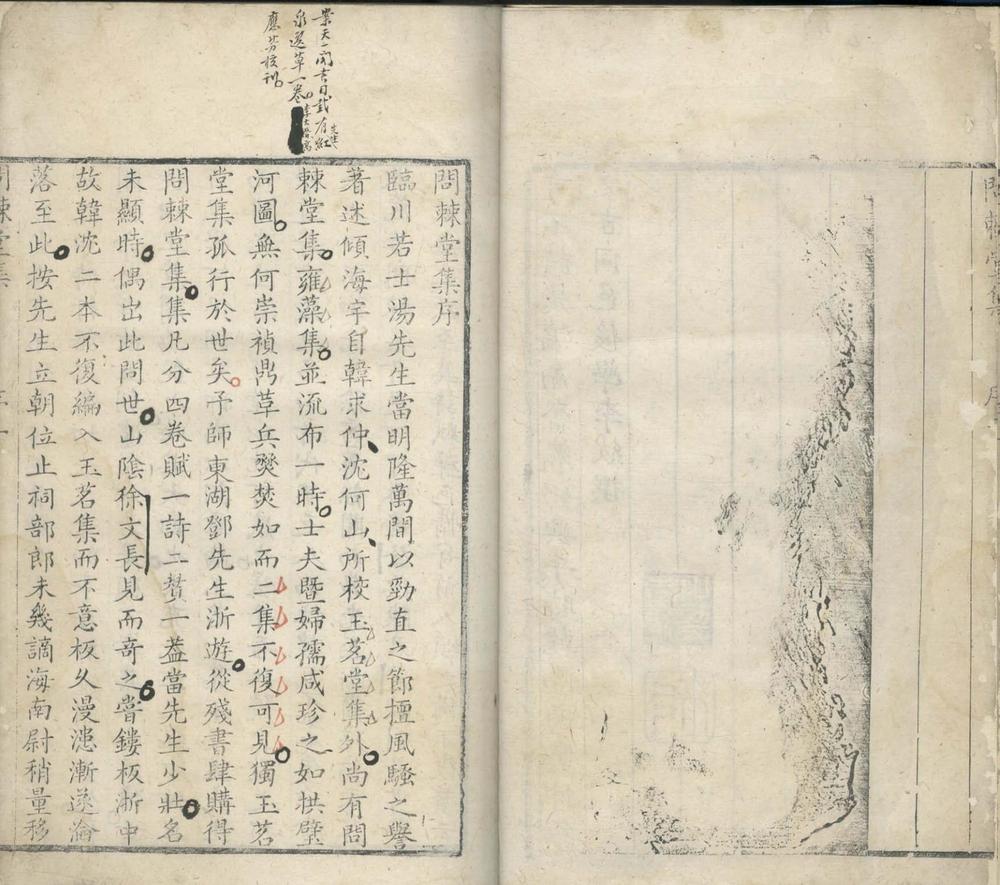 問棘堂集序
臨川若士湯先生當明隆萬間以勁直之節擅風騷之譽
著述傾海宇自韓求仲沈何山所校玉茗堂集外尚有問
棘堂集雍藻集並流布一時士夫暨婦孺咸珍之如拱璧
河圖無何崇禎鼎革兵燹焚如而二集不復可見獨玉茗
堂集孤行於世矣予師東湖鄧先生浙遊從殘書肆購得
問棘堂集集凡分四卷賦一詩二贊一葢當先生少壯名
未顯時偶出此問世山陰徐文長見而奇之嘗鏤板浙中
故韓沈二本不復編入玉茗集而不意板久漫漶漸遂淪
落至此按先生立朝位止祠部郎未幾謫海南尉稍量移
問棘堂集
案天一閣書目載有紅
泉逸草一卷
應芳校刊